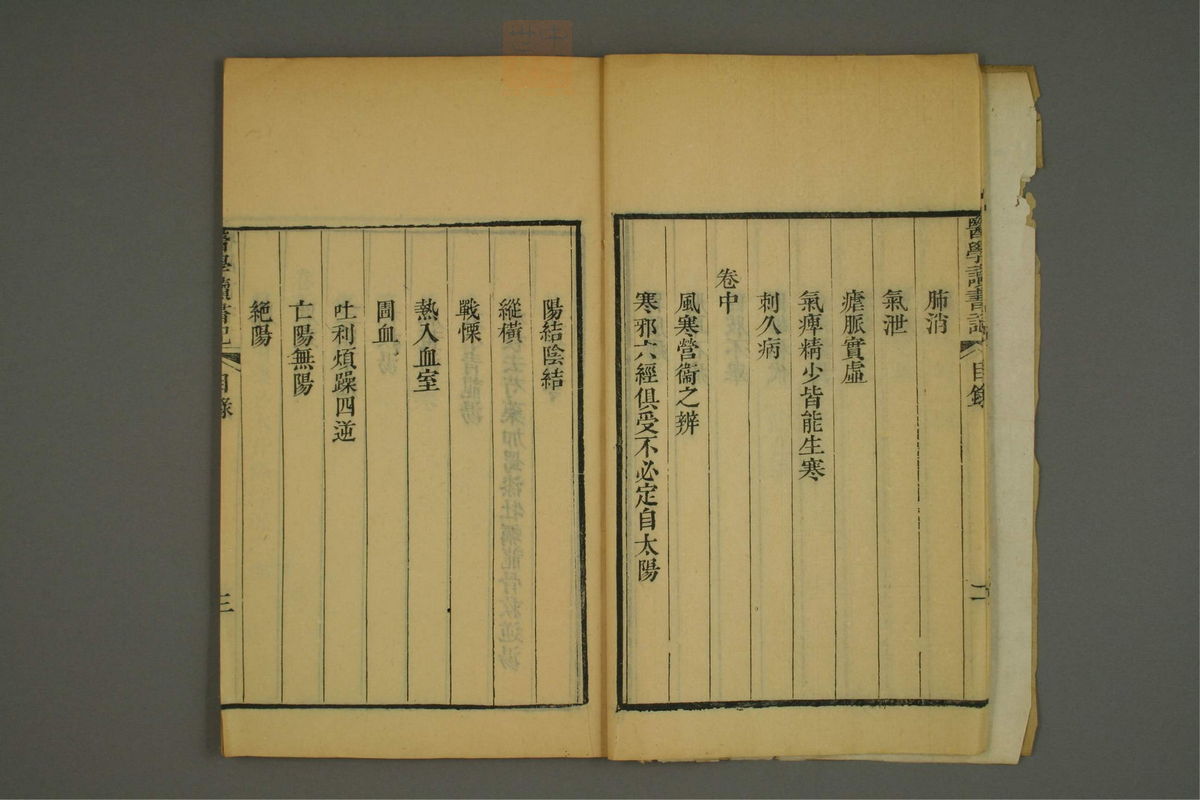 醫學讀書記 目錄 二
肺消
氣泄
瘧脈實虛
氣痺精少皆能生寒
刺久病
卷中
風寒營衞之辨
寒邪六經俱受不必定自太陽
陽結陰結
縱橫
戰慄
熱入血室
圊血
吐利煩躁四逆
亡陽無陽
絕陽
醫學讀書記 目錄 三